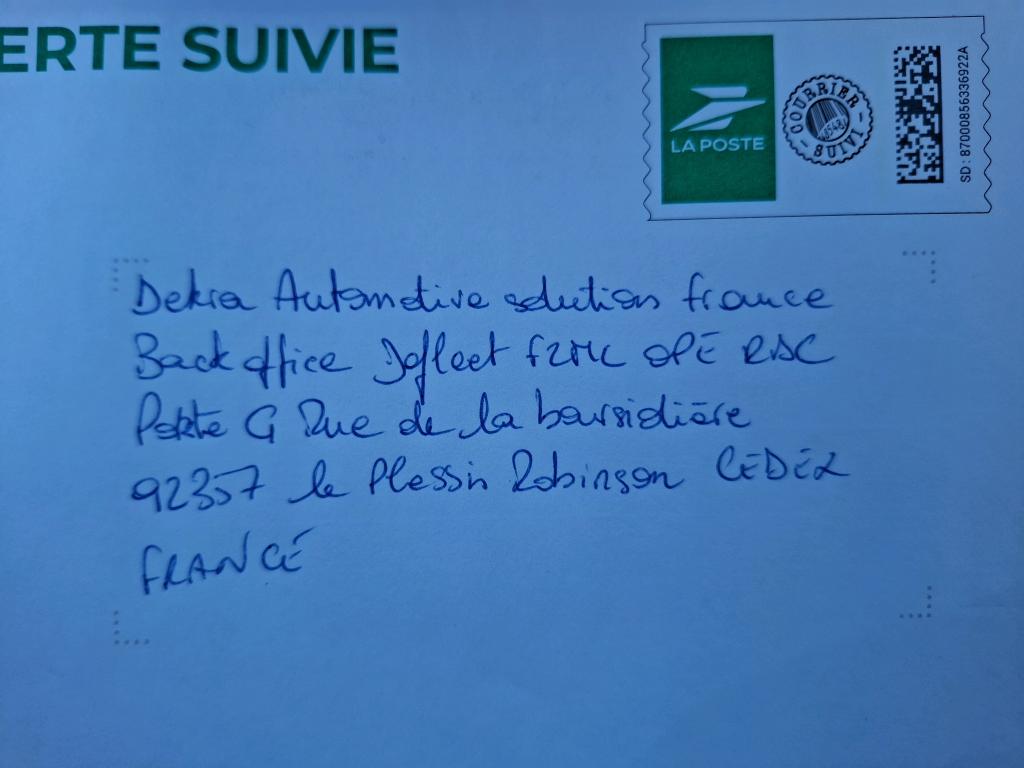 ERTE SUIVIE
LA POSTE
COURRIER
SUIVI
SD : 87000856336922A
Dekra Automotive solutions france
Back office Jofleet F2ML OPE RSC
Porte G Rue de la boursidière
92357 le Plessis Robinson CEDEX
FRANCE